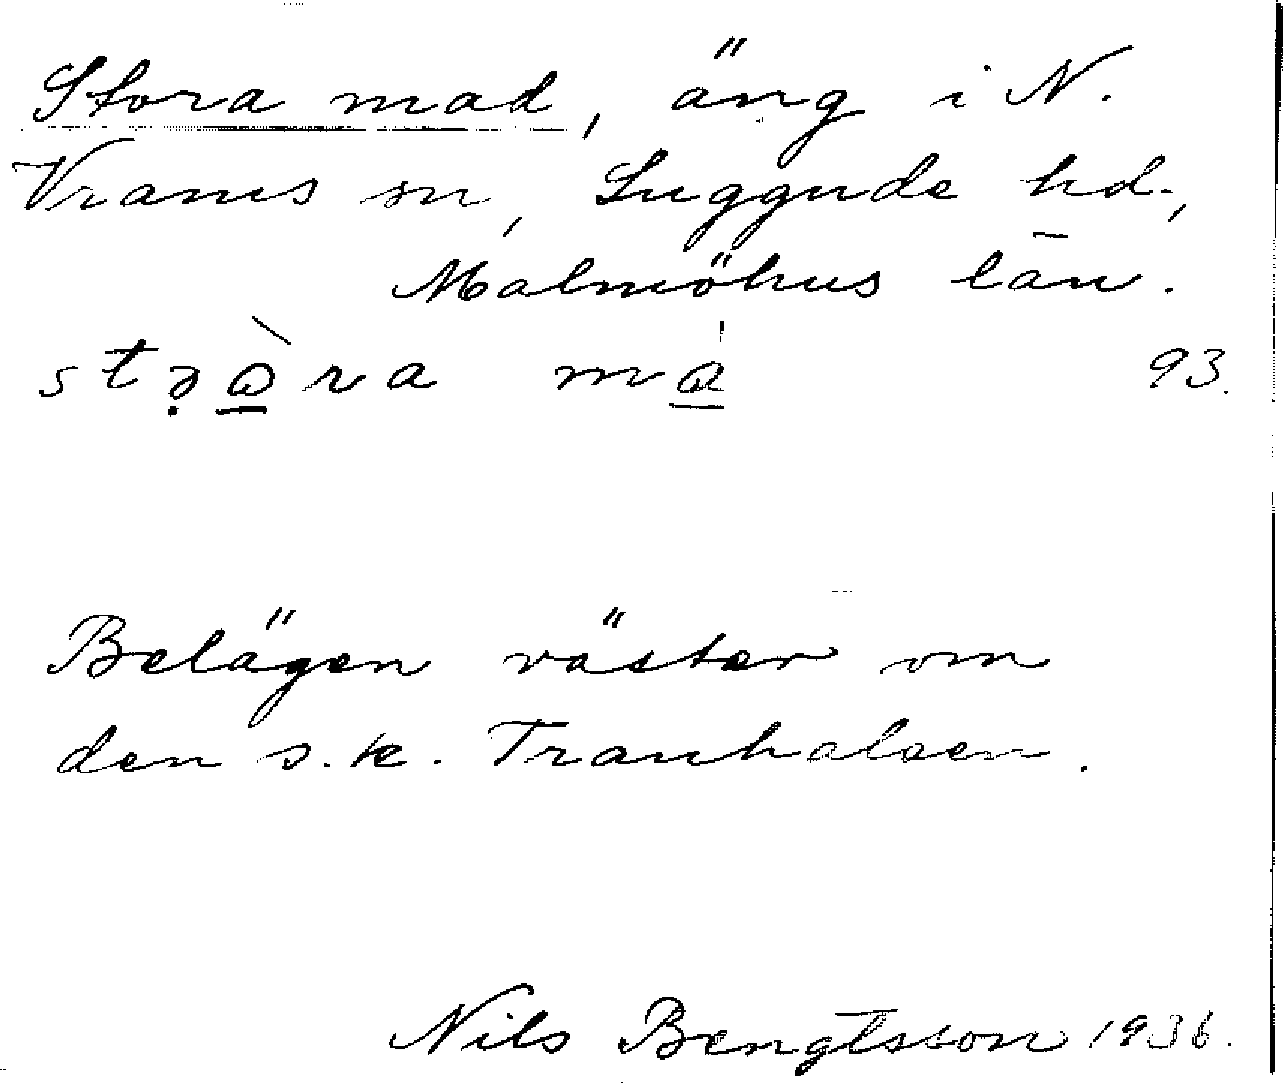 Stora mad, äng i N.
Vrams sn, Luggude hd.,
Malmöhus län.
93.
Belägen väster om
den s.k. Tranhalsen.
Nils Bengtsson 1936.